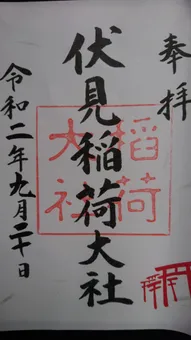 奉拝
伏見稲荷大社
稲荷大社
令和二年九月二十日